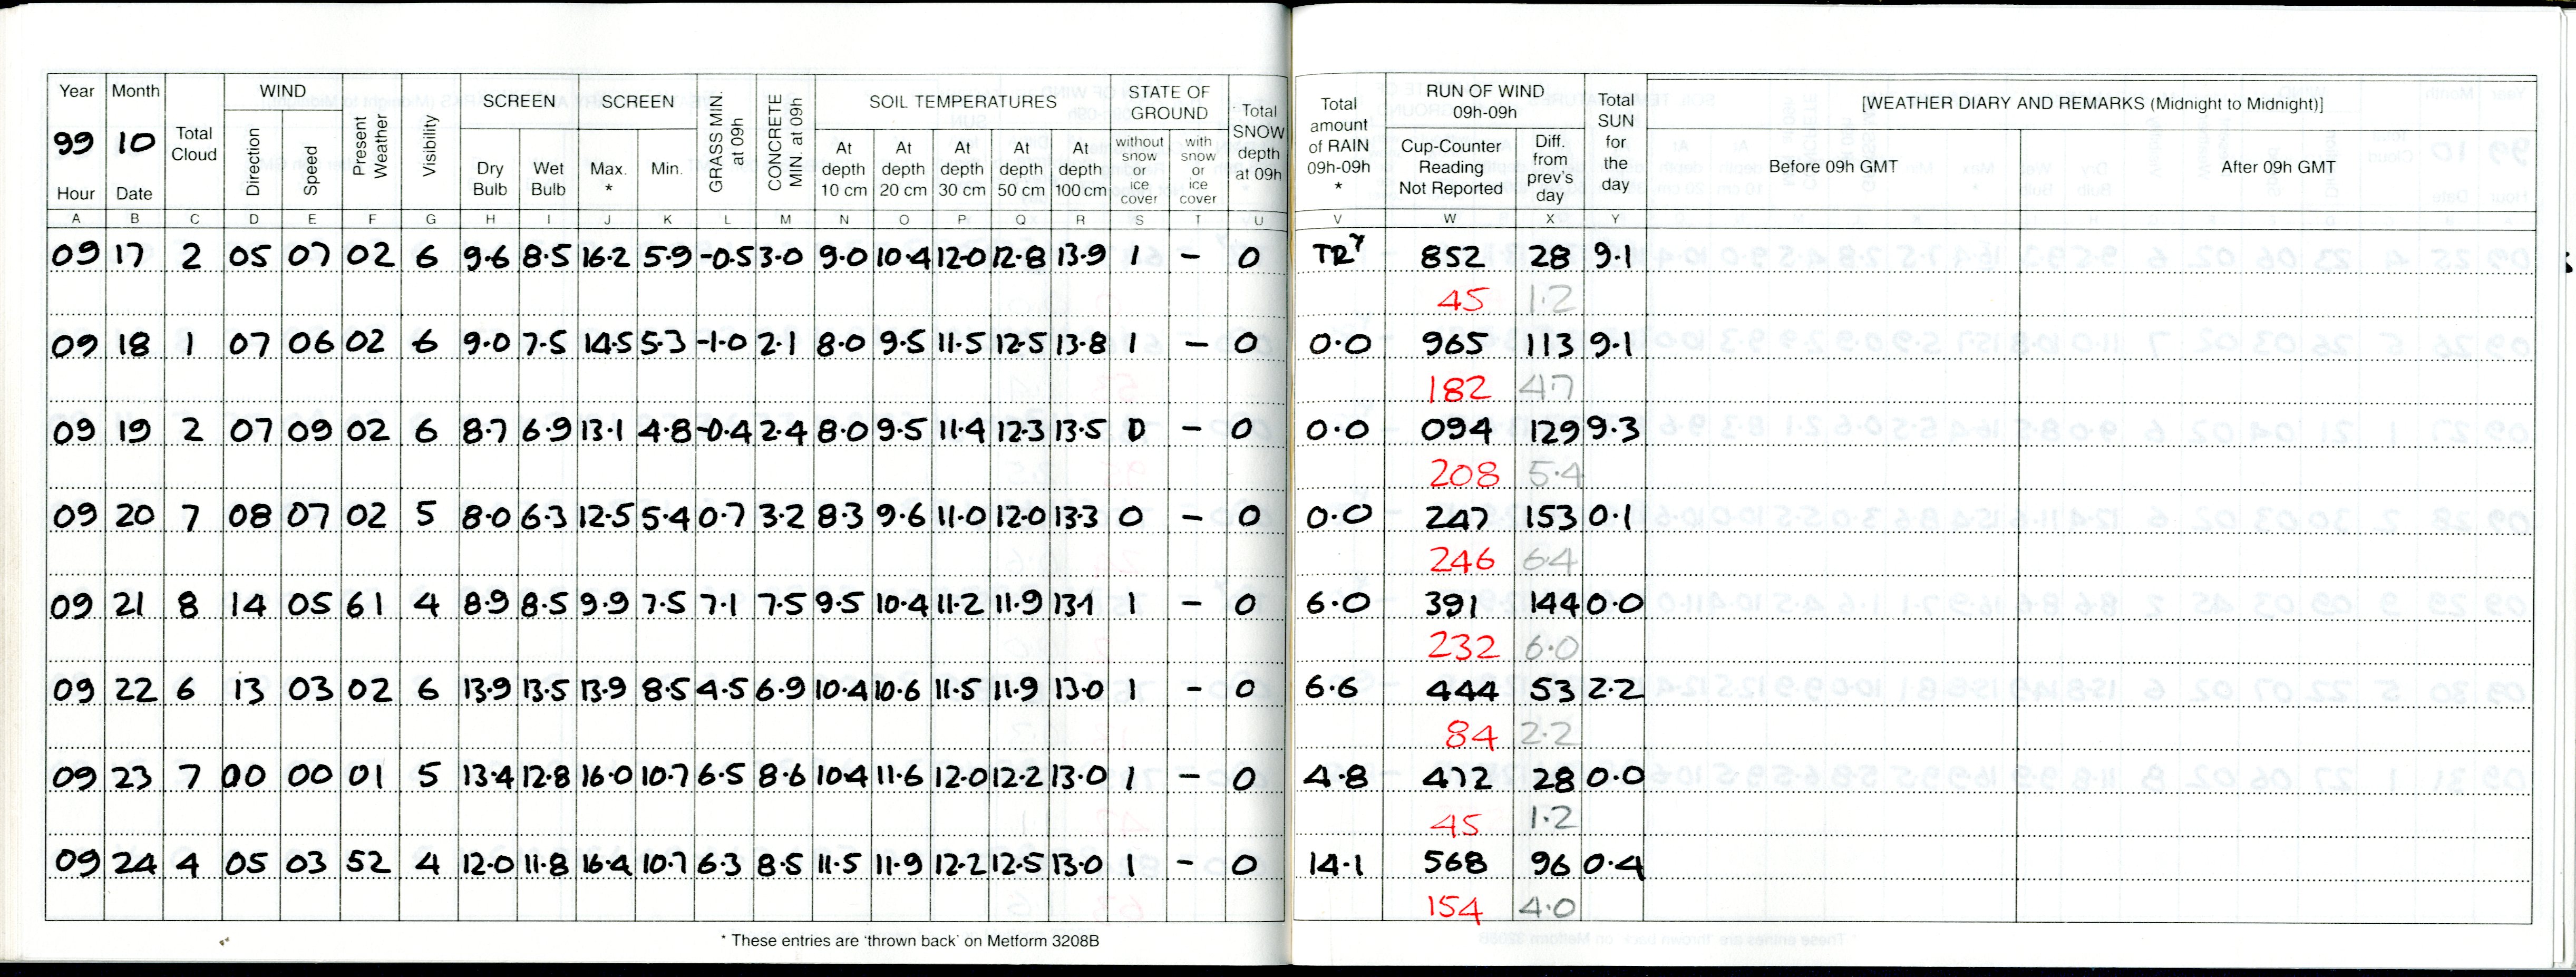 Year Month WIND SCREEN SCREEN SOIL TEMPERATURES STATE OF GROUND RUN OF WIND 09h-09h [WEATHER DIARY AND REMARKS (Midnight to Midnight)]
99 10 Total Cloud Direction Speed Present Weather Visibility Dry Bulb Wet Bulb Max. * Min. GRASS MIN. at 09h CONCRETE MIN. at 09h At depth 10 cm At depth 20 cm At depth 30 cm At depth 50 cm At depth 100 cm without snow or ice cover with snow or ice cover Total SNOW depth at 09h Total amount of RAIN 09h-09h * Cup-Counter Reading Not Reported Diff. from prev's day Total SUN for the day Before 09h GMT After 09h GMT
Hour Date
A B C D E F G H I J K L M N O P Q R S T U V W X Y
09 17 2 05 07 02 6 9.6 8.5 16.2 5.9 -0.5 3.0 9.0 10.4 12.0 12.8 13.9 1 - 0 TR 852 28 9.1
45 1.2
09 18 1 07 06 02 6 9.0 7.5 14.5 5.3 -1.0 2.1 8.0 9.5 11.5 12.5 13.8 1 - 0 0.0 965 113 9.1
182 4.7
09 19 2 07 09 02 6 8.7 6.9 13.1 4.8 -0.4 2.4 8.0 9.5 11.4 12.3 13.5 0 - 0 0.0 094 129 9.3
208 5.4
09 20 7 08 07 02 5 8.0 6.3 12.5 5.4 0.7 3.2 8.3 9.6 11.0 12.0 13.3 0 - 0 0.0 247 153 0.1
246 6.4
09 21 8 14 05 61 4 8.9 8.5 9.9 7.5 7.1 7.5 9.5 10.4 11.2 11.9 13.1 1 - 0 6.0 391 144 0.0
232 6.0
09 22 6 13 03 02 6 13.9 13.5 13.9 8.5 4.5 6.9 10.4 10.6 11.5 11.9 13.0 1 - 0 6.6 444 53 2.2
84 2.2
09 23 7 00 00 01 5 13.4 12.8 16.0 10.7 6.5 8.6 10.4 11.6 12.0 12.2 13.0 1 - 0 4.8 472 28 0.0
45 1.2
09 24 4 05 03 52 4 12.0 11.8 16.4 10.7 6.3 8.5 11.5 11.9 12.2 12.5 13.0 1 - 0 14.1 568 96 0.4
154 4.0
* These entries are 'thrown back' on Metform 3208B